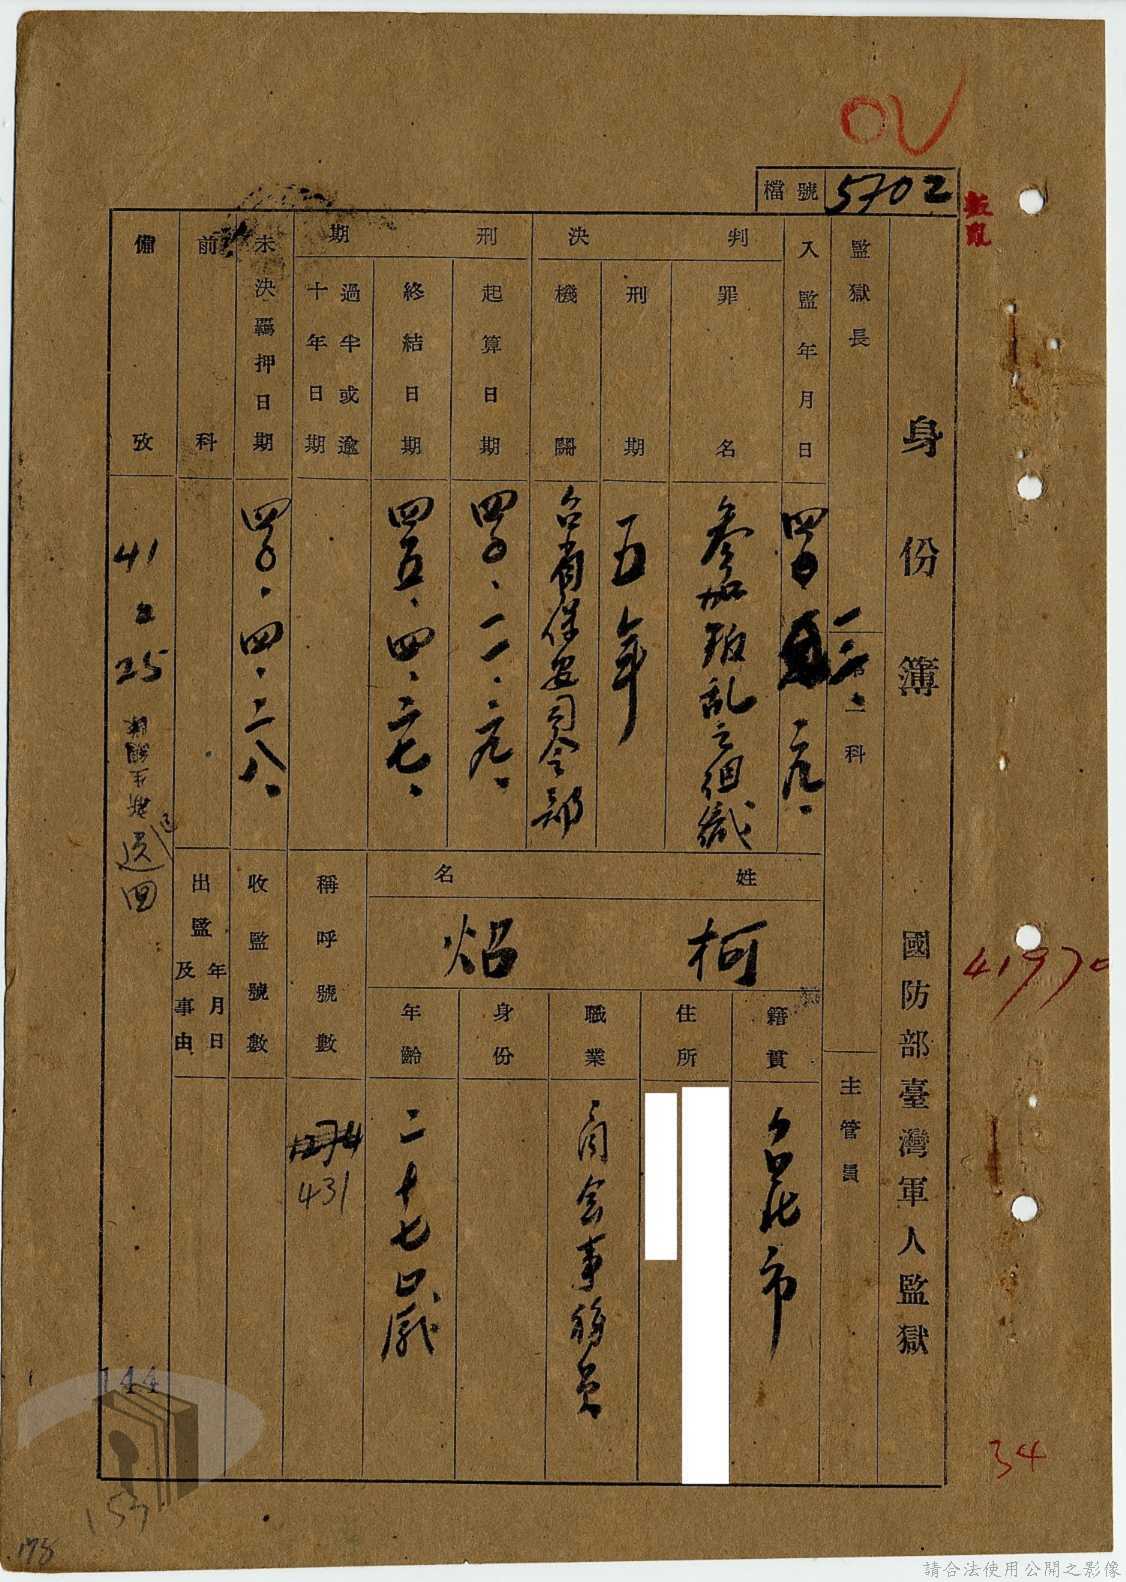 OV
檔號 5702
叛亂
身份簿 國防部臺灣軍人監獄
41970
34
監獄長
第一科
主管員
入監年月日
判決
罪名 參加叛乱之組織
刑期 五年
機關 台省保安司令部
刑期
起算日期 四〇、一一、二九、
終結日期 四五、四、二七、
過半或逾十年日期
未決羈押日期 四〇、四、二八、
前科
備攷 41 2 25 新生總隊 送回
姓名 柯焰
籍貫 台北市
住所
職業 商会事務員
身份
年齡 二十七歲
稱呼號數 431
收監號數
出監年月日及事由
144
153
178
請合法使用公開之影像